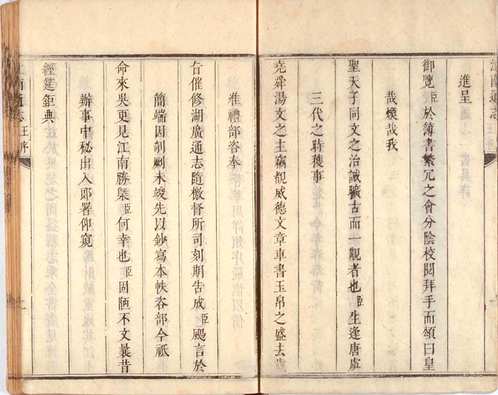 進呈
御覽姫於簿書繁冗之會分陰校閱拜手而頌曰皇
哉懷哉我
聖天子同文之治誠曠古而一覩者也姫生逢唐虞
三代之時獲事
堯舜湯文之主竊覩威德文章車書玉帛之盛去歲
准禮部咨奉
旨催修湖廣通志隨檄督所司刻期告成姫颺言於
簡端因制剞未竣先以鈔寫本佚咨部今祇
命來吳更見江南勝槩姫何幸也姫固陋不文曩昔
辦事中秘出入郎署仰窺
經筵鉅典
江南通志 序